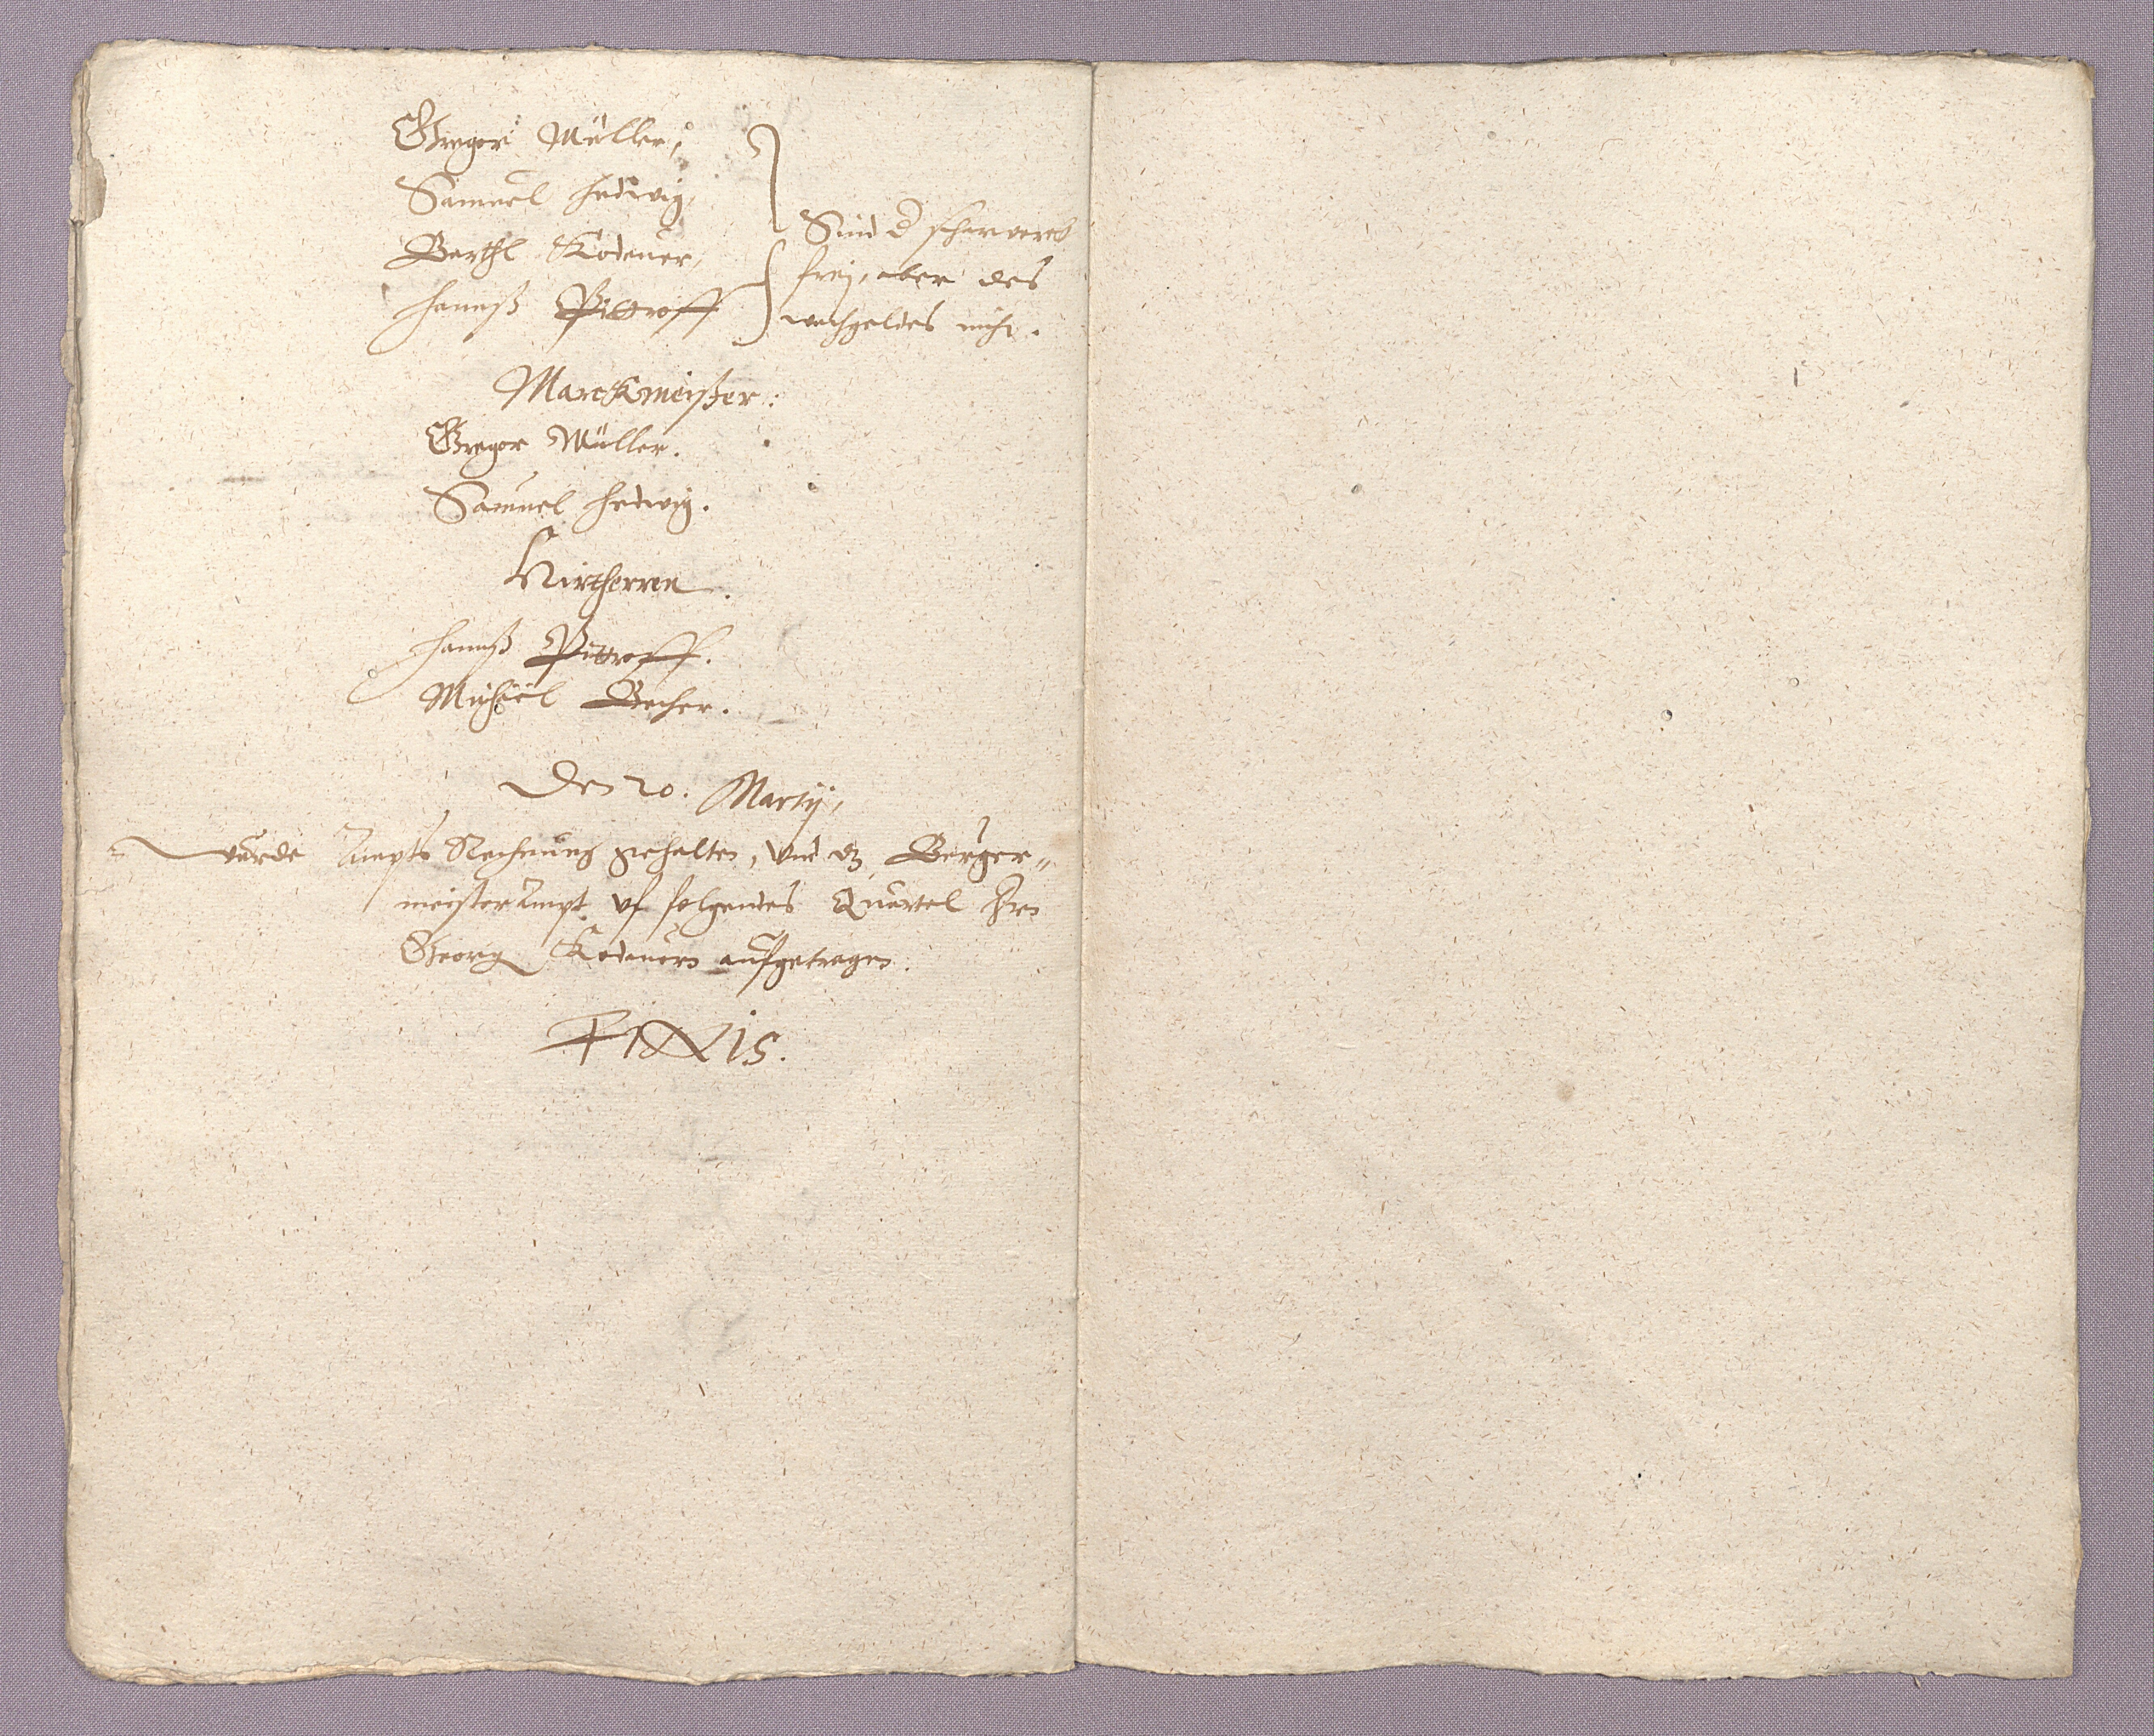 Gregor Müller,
Samuel Hedwig,
Barthl Kodauer,
Hannß Pittroff
Sind d scharwerck
frej, aber des
wachgeldes nicht.
Marckmeister:
Gregor Müller.
Samuel Hedwig.
Hirtherren.
Hannß Pittroff.
Michael Becher.
Den 20. Martij,
wurde Ampts Rechnung gehalten, vnd dz Burger„
meister Ampt vf folgendes Quartel Hrn
Georg Kodauern aufgetragen.
FINIS.